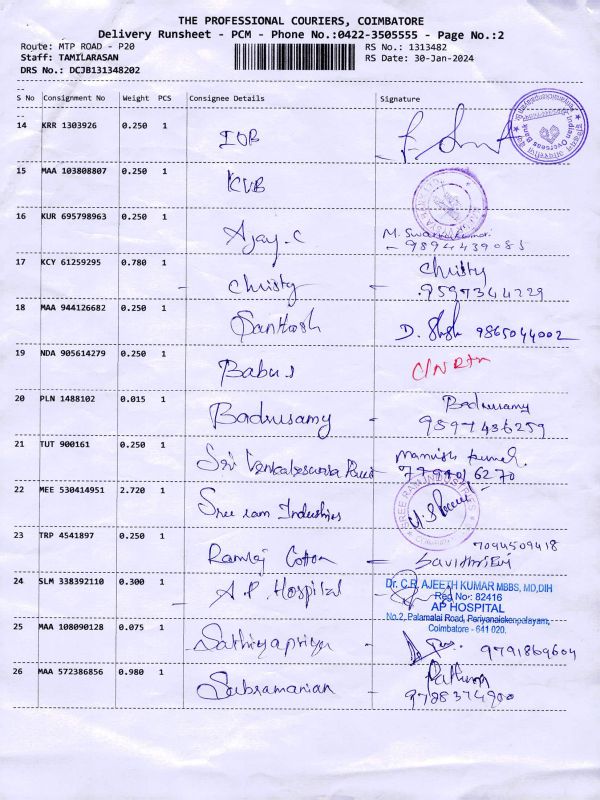 THE PROFESSIONAL COURIERS, COIMBATORE
Delivery Runsheet - PCM - Phone No.:0422-3505555 - Page No.:2
Route: MTP ROAD - P20
RS No.: 1313482
Staff: TAMILARASAN
RS Date: 30-Jan-2024
DRS No.: DCJB131348202
S No Consignment No Weight PCS Consignee Details Signature
14 KRR 1303926 0.250 1 IOB
Indian Overseas Bank
15 MAA 103808807 0.250 1 KVB
16 KUR 695798963 0.250 1 Ajay.C M. Swarnakumari
- 9894439085
17 KCY 61259295 0.780 1 Christy - Christy
9597344229
18 MAA 944126682 0.250 1 Santhosh D. 9865044002
19 NDA 905614279 0.250 1 Babu s C/N Rtn
20 PLN 1488102 0.015 1 Badrusamy - Badrusamy
9597436259
21 TUT 900161 0.250 1 Sri Venkateswara Manish Kumar.
22 MEE 530414951 2.720 1 Sree ram Industries
SREE RAM INDUSTRIES
23 TRP 4541897 0.250 1 Ramraj Cotton - 7094509418
24 SLM 338392110 0.300 1 A.P. Hospital -
Dr. C.R. AJEETH KUMAR MBBS, MD,DIH
Reg No: 82416
AP HOSPITAL
No.2, Palamalai Road, Periyanaickenpalayam,
Coimbatore - 641 020.
25 MAA 108090128 0.075 1 Sathiyapriya - 9791869604
26 MAA 572386856 0.980 1 Subramanian - Rathina
9788374900